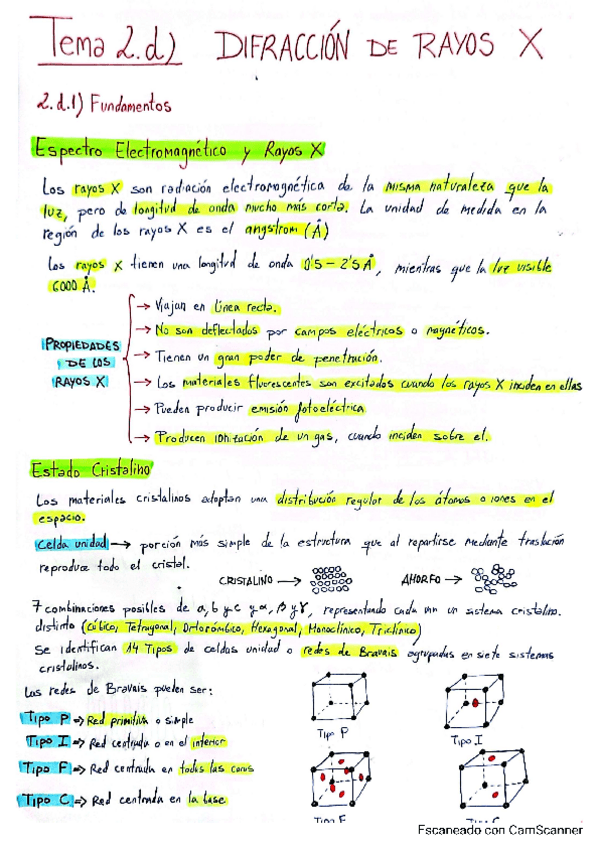 Tema 2.d) DIFRACCIÓN DE RAYOS X
2.d.1) Fundamentos
Espectro Electromagnético y Rayos X
Los rayos X son radiación electromagnética de la misma naturaleza que la
luz, pero de longitud de onda mucho más corta. La unidad de medida en la
región de los rayos X es el angstrom (Å)
Los rayos X tienen una longitud de onda 0'5 - 2'5 Å, mientras que la luz visible
6000 Å.
PROPIEDADES DE LOS RAYOS X
→ Viajan en línea recta.
→ No son deflectados por campos eléctricos o magnéticos.
→ Tienen un gran poder de penetración.
→ Los materiales fluorescentes son excitados cuando los rayos X inciden en ellas
→ Pueden producir emisión fotoeléctrica
→ Producen ionización de un gas, cuando inciden sobre el.
Estado Cristalino
Los materiales cristalinos adoptan una distribución regular de los átomos o iones en el
espacio.
Celda unidad → porción más simple de la estructura que al repartirse mediante traslación
reproduce todo el cristal.
CRISTALINO → AMORFO →
7 combinaciones posibles de a, b y c y α, β y γ, representando cada una un sistema cristalino.
distinto (Cúbico, Tetragonal, Ortorómbico, Hexagonal, Monoclínico, Triclínico)
Se identifican 14 Tipos de celdas unidad o redes de Bravais agrupadas en siete sistemas
cristalinos.
Las redes de Bravais pueden ser:
Tipo P ⇒ Red primitiva o simple
Tipo I ⇒ Red centrada o en el interior
Tipo F ⇒ Red centrada en todas las caras
Tipo C ⇒ Red centrada en la base
Tipo P
Tipo I
Tipo F
Tipo C
Escaneado con CamScanner